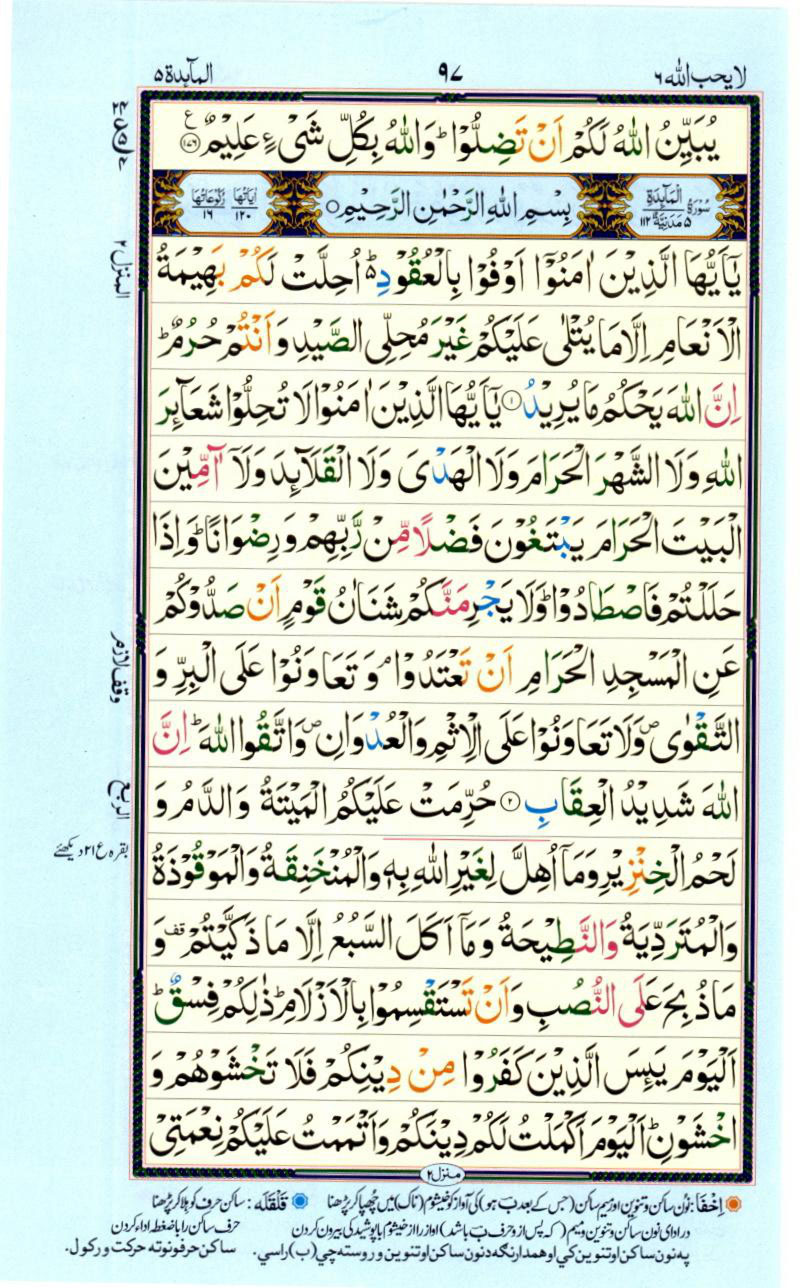 لا يحب الله ٦
٩٧
المآىدة ٥
يُبَيِّنُ اللّٰهُ لَكُمْ اَنْ تَضِلُّوْا ؕ وَاللّٰهُ بِكُلِّ شَیْءٍ عَلِيْمٌ ﴿۱۷۶﴾ ع
سُوْرَةُ الْمَآئِدَةِ ٥ مَدَنِيَّةٌ ١١٢
بِسْمِ اللّٰهِ الرَّحْمٰنِ الرَّحِيْمِ ○
اٰيَاتُهَا ١٢٠ رُكُوْعَاتُهَا ١٦
يٰۤاَيُّهَا الَّذِيْنَ اٰمَنُوْۤا اَوْفُوْا بِالْعُقُوْدِ ؕ۬ اُحِلَّتْ لَكُمْ بَهِيْمَةُ
الْاَنْعَامِ اِلَّا مَا يُتْلٰى عَلَيْكُمْ غَيْرَ مُحِلِّی الصَّيْدِ وَاَنْتُمْ حُرُمٌ ؕ
اِنَّ اللّٰهَ يَحْكُمُ مَا يُرِيْدُ ﴿۱﴾ يٰۤاَيُّهَا الَّذِيْنَ اٰمَنُوْا لَا تُحِلُّوْا شَعَآئِرَ
اللّٰهِ وَلَا الشَّهْرَ الْحَرَامَ وَلَا الْهَدْیَ وَلَا الْقَلَآئِدَ وَلَاۤ آٰمِّيْنَ
الْبَيْتَ الْحَرَامَ يَبْتَغُوْنَ فَضْلًا مِّنْ رَّبِّهِمْ وَرِضْوَانًا ؕ وَاِذَا
حَلَلْتُمْ فَاصْطَادُوْا ؕ وَلَا يَجْرِمَنَّكُمْ شَنَاٰنُ قَوْمٍ اَنْ صَدُّوْكُمْ
عَنِ الْمَسْجِدِ الْحَرَامِ اَنْ تَعْتَدُوْا ۘ وَتَعَاوَنُوْا عَلَى الْبِرِّ وَ
التَّقْوٰى ۪ وَلَا تَعَاوَنُوْا عَلَى الْاِثْمِ وَالْعُدْوَانِ ۪ وَاتَّقُوا اللّٰهَ ؕ اِنَّ
اللّٰهَ شَدِيْدُ الْعِقَابِ ﴿۲﴾ حُرِّمَتْ عَلَيْكُمُ الْمَيْتَةُ وَالدَّمُ وَ
لَحْمُ الْخِنْزِيْرِ وَمَاۤ اُهِلَّ لِغَيْرِ اللّٰهِ بِهٖ وَالْمُنْخَنِقَةُ وَالْمَوْقُوْذَةُ
وَالْمُتَرَدِّيَةُ وَالنَّطِيْحَةُ وَمَاۤ اَكَلَ السَّبُعُ اِلَّا مَا ذَكَّيْتُمْ قف وَ
مَا ذُبِحَ عَلَى النُّصُبِ وَاَنْ تَسْتَقْسِمُوْا بِالْاَزْلَامِ ؕ ذٰلِكُمْ فِسْقٌ ؕ
اَلْيَوْمَ يَئِسَ الَّذِيْنَ كَفَرُوْا مِنْ دِيْنِكُمْ فَلَا تَخْشَوْهُمْ وَ
اخْشَوْنِ ؕ اَلْيَوْمَ اَكْمَلْتُ لَكُمْ دِيْنَكُمْ وَاَتْمَمْتُ عَلَيْكُمْ نِعْمَتِیْ
المنزل ٢
وقف لازم
الربع
بقرہ ع ۲۱ دیکھئے
منزل ٢
اِخْفَا: نُون ساکن و تنوین اور میم ساکن (جس کے بعد بؔ ہو) کی آواز کو خیشوم (ناک) میں چُھپا کر پڑھنا قَلْقَلَه: ساکن حرف کو ہلا کر پڑھنا
در ادای نون ساکن و تنوین و میم (که پس از و حرف بؔ باشد) آواز را از خیشوم با پوشیدگی بیرون کردن حرف ساکن را با ضغطه اداء کردن
په نون ساکن او تنوین کي او همدارنگه د نون ساکن او تنوین و روسته چي (ب) راسي. ساکن حرفونو ته حرکت ورکول.